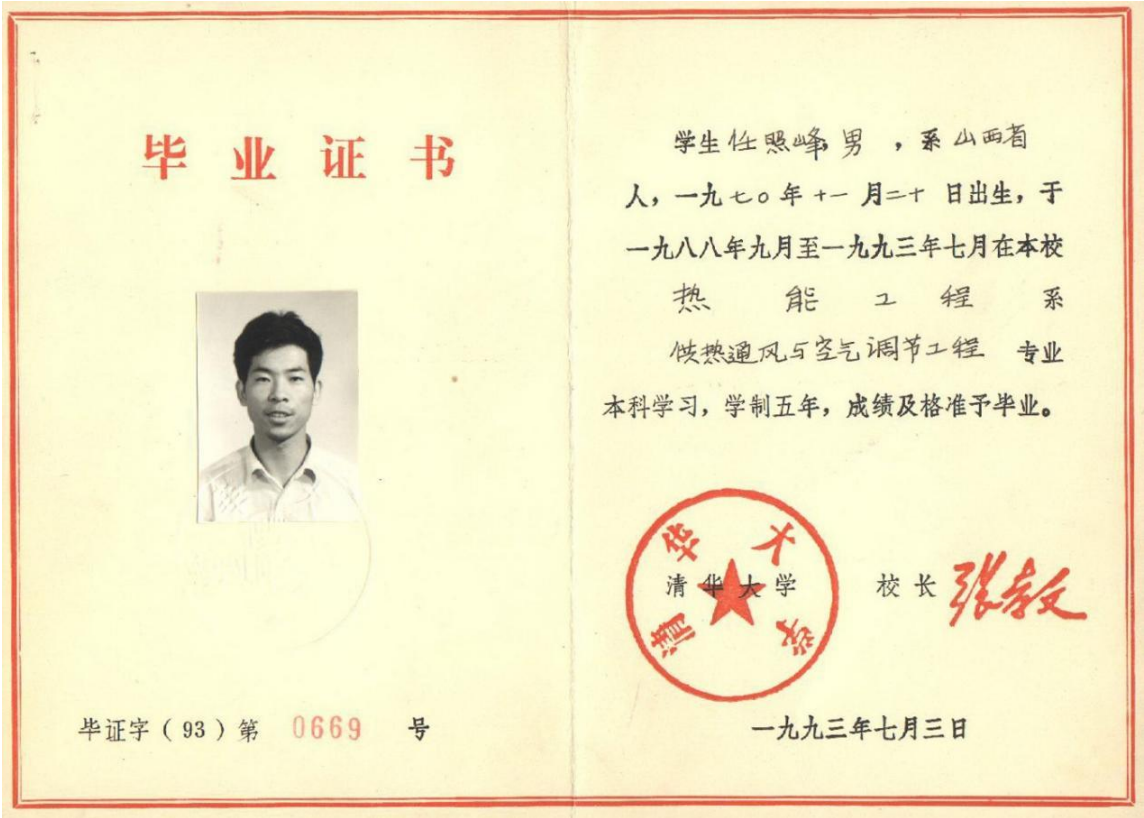 毕业证书
毕证字(93)第 0669 号
学生任照峰,男 ,系山西省
人,一九七〇年十一月二十日出生,于
一九八八年九月至一九九三年七月在本校
热能工程系
供热通风与空气调节工程 专业
本科学习,学制五年,成绩及格准予毕业。
清华大学
清华大学 校长 张孝文
一九九三年七月三日